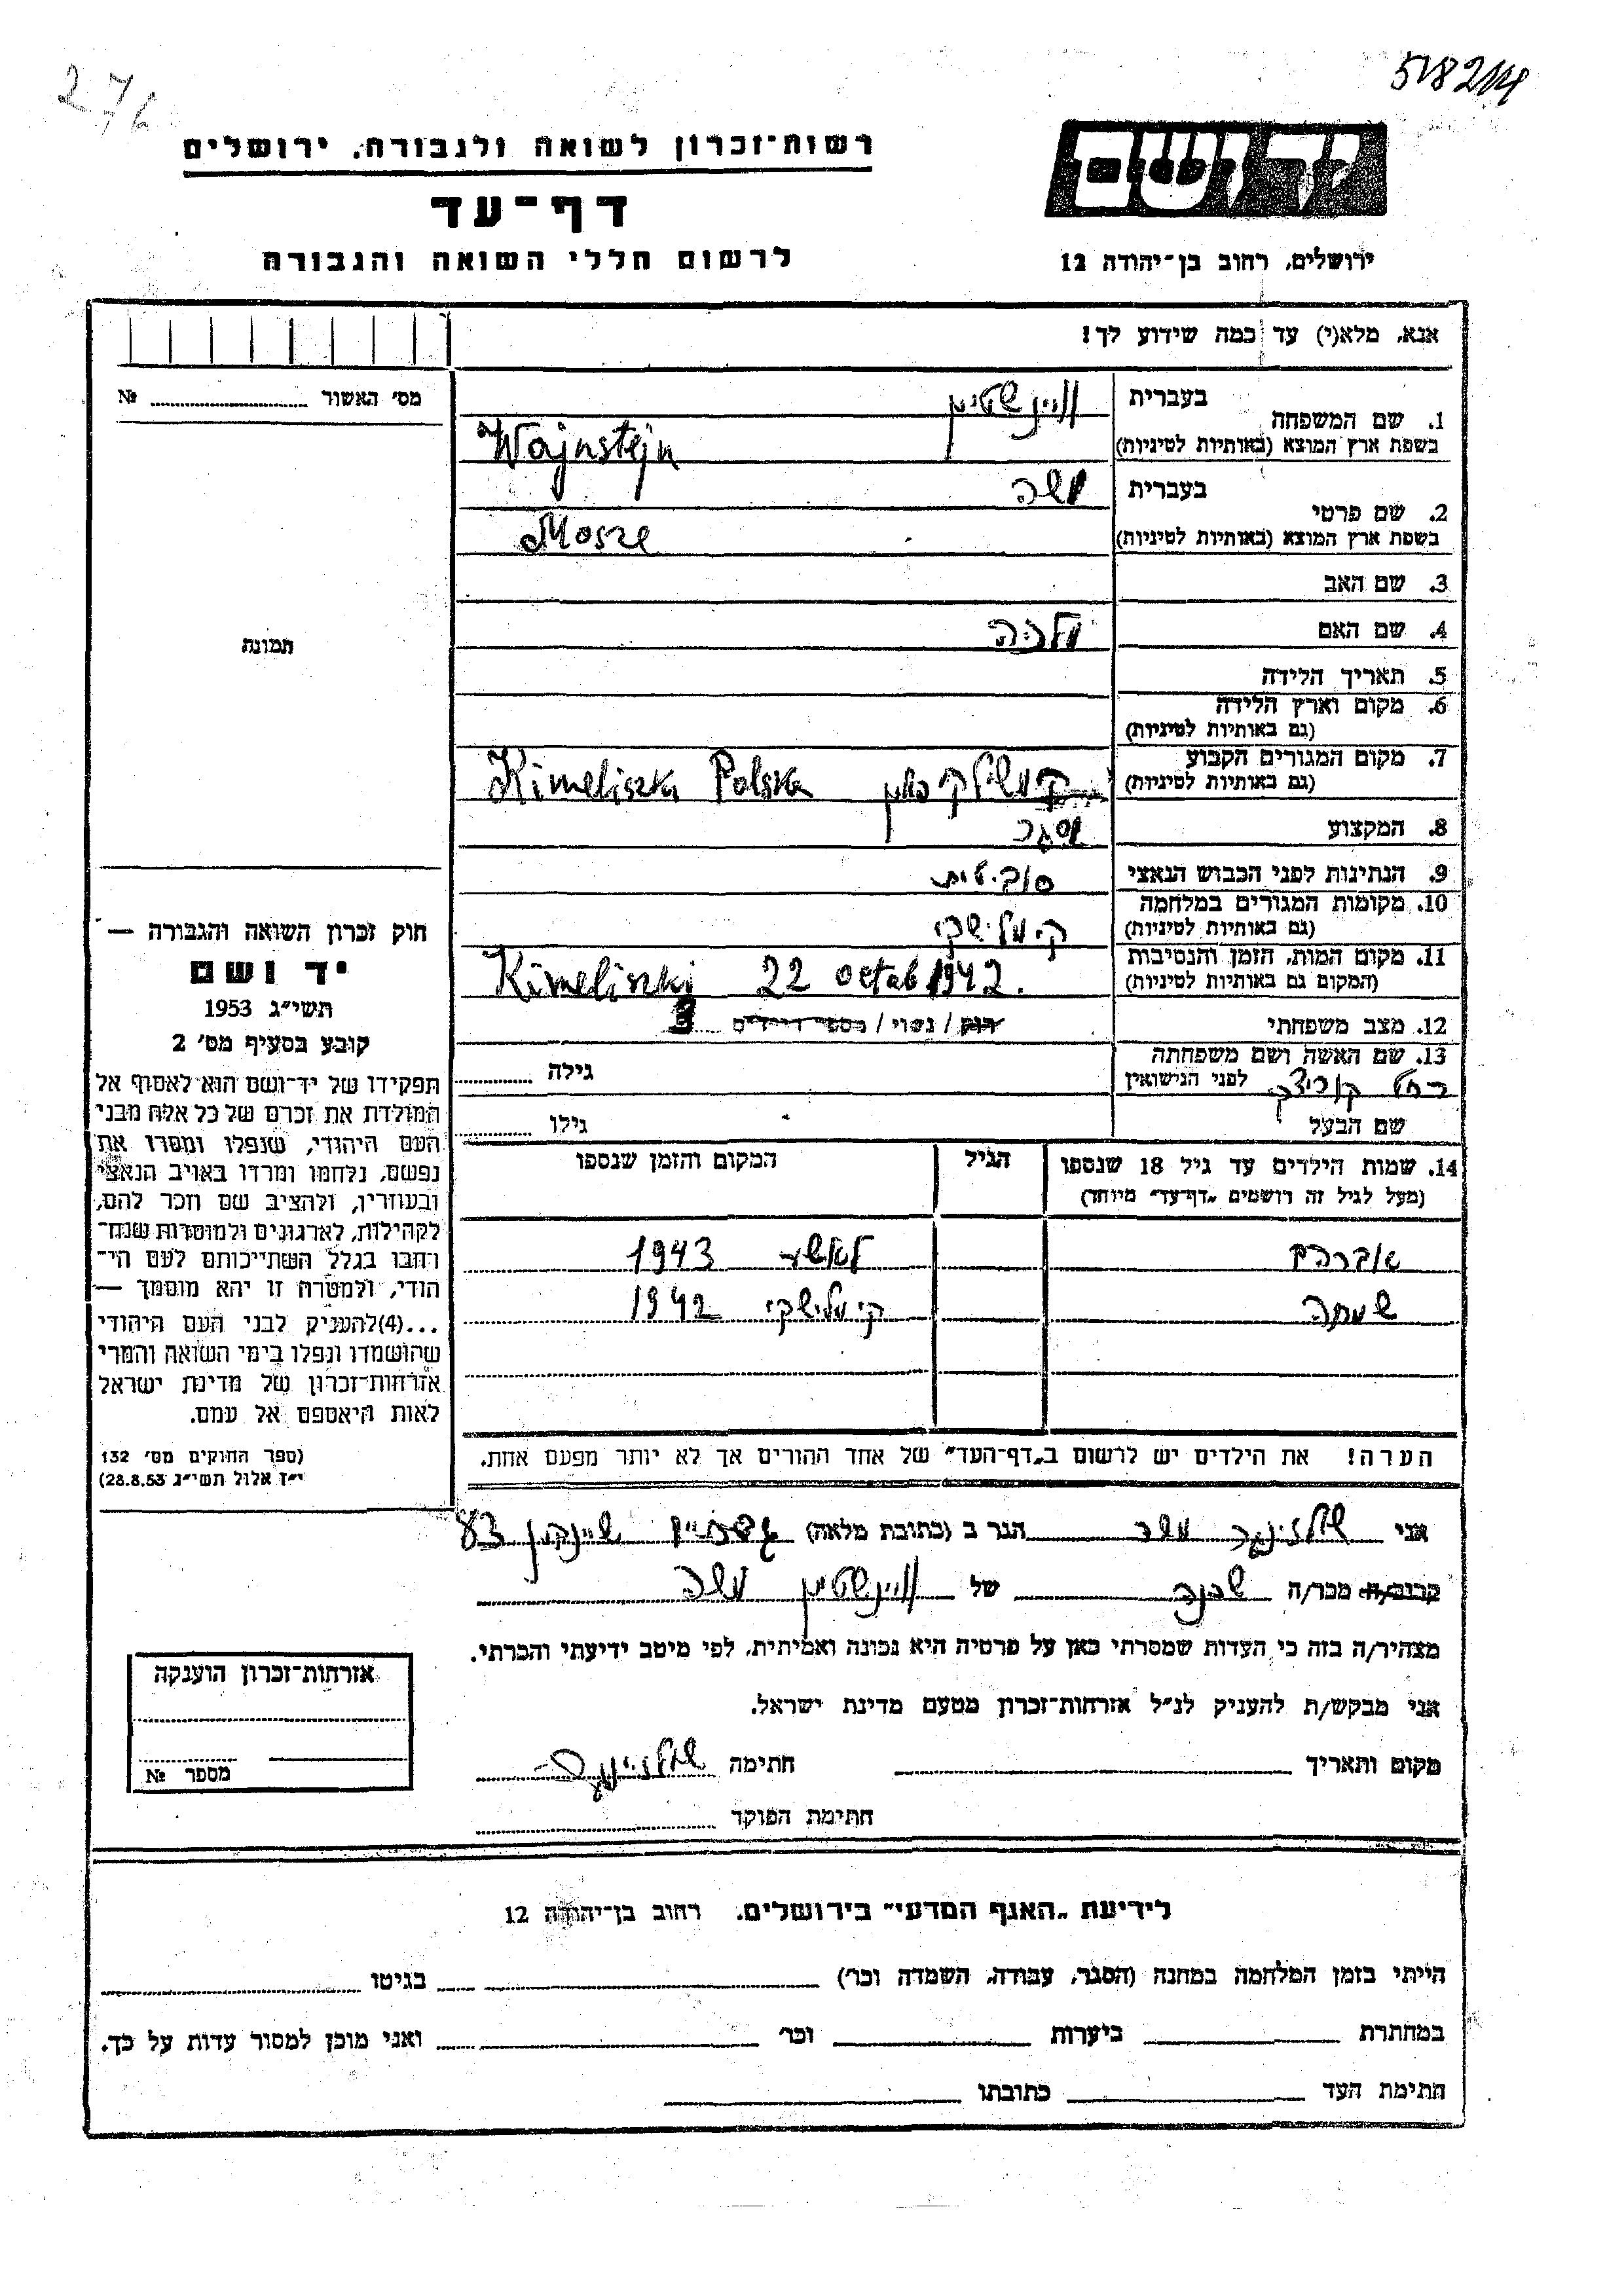 276
518214
רשות־זכרון לשואה ולגבורה, ירושלים
יד ושם
דף־עד
לרשום חללי השואה והגבורה
ירושלים, רחוב בן־יהודה 12
אנא, מלא(י) עד כמה שידוע לך!
מס׳ האשור № 
1. שם המשפחה
בעברית ויינשטיין
בשפת ארץ המוצא (באותיות לטיניות) Wajnstejn
2. שם פרטי
בעברית משה
בשפת ארץ המוצא (באותיות לטיניות) Mosze
3. שם האב
4. שם האם מלכה
תמונה
5. תאריך הלידה
6. מקום וארץ הלידה
(גם באותיות לטיניות)
7. מקום המגורים הקבוע
(גם באותיות לטיניות) Kimeliszki Polska
8. המקצוע מסגר
9. הנתינות לפני הכבוש הנאצי סוביטית
10. מקומות המגורים במלחמה
(גם באותיות לטיניות) קימלישקי
11. מקום המות, הזמן והנסיבות
(המקום גם באותיות לטיניות) Kimeliszki 22 octob 1942.
12. מצב משפחתי רוק / נשוי / מספר הילדים
13. שם האשה ושם משפחתה
לפני הנישואין גילה
שם הבעל גילו
14. שמות הילדים עד גיל 18 שנספו
(מעל לגיל זה רושמים „דף־עד״ מיוחד)
הגיל
המקום והזמן שנספו
אברהם 1943
שמחה קימלישקי 1942
הערה! את הילדים יש לרשום ב„דף־העד״ של אחד ההורים אך לא יותר מפעם אחת.
חוק זכרון השואה והגבורה —
יד ושם
תשי״ג 1953
קובע בסעיף מס׳ 2
תפקידו של יד־ושם הוא לאסוף אל
המולדת את זכרם של כל אלה מבני
העם היהודי, שנפלו ומסרו את
נפשם, נלחמו ומרדו באויב הנאצי
ובעוזריו, ולהציב שם וזכר להם,
לקהילות, לארגונים ולמוסדות שנח־
רחבו בגלל השתייכותם לעם הי־
הודי, ולמטרה זו יהא מוסמך —
...(4)להעניק לבני העם היהודי
שהושמדו ונפלו בימי השואה והמרי
אזרחות־זכרון של מדינת ישראל
לאות היאספם אל עמם.
(ספר החוקים מס׳ 132
י״ז אלול תשי״ג 28.8.53)
אני שלזינגר משה הגר ב (כתובת מלאה) שיינקין 83
קרוב/ה מכר/ה שכנה של ויינשטיין משה
מצהיר/ה בזה כי העדות שמסרתי כאן על פרטיה היא נכונה ואמיתית, לפי מיטב ידיעתי והכרתי.
אני מבקש/ת להעניק לנ״ל אזרחות־זכרון מטעם מדינת ישראל.
מקום ותאריך חתימה
חתימת הפוקד
אזרחות־זכרון הוענקה
מספר №
לידיעת „האגף המדעי״ בירושלים, רחוב בן־יהודה 12
הייתי בזמן המלחמה במחנה (הסגר, עבודה, השמדה וכר׳) בגיטו
במחתרת ביערות וכר׳ ואני מוכן למסור עדות על כך.
חתימת העד כתובתו